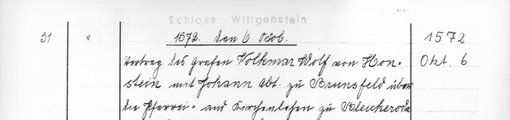 Schloss Wittgenstein
51 " 1572. den 6 Octob. 1572
Vertrag des Grafen Volkmar Wolf von Hon- Okt. 6
stein mit Johann Abt. zu Brunsfeld über
die Pfarrei- und Kirchenlehen zu Bleicherode